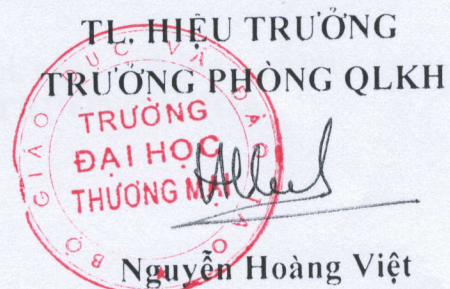 TL. HIỆU TRƯỞNG
TRƯỞNG PHÒNG QLKH
BỘ GIÁO DỤC VÀ ĐÀO TẠO
TRƯỜNG
ĐẠI HỌC
THƯƠNG MẠI
Nguyễn Hoàng Việt